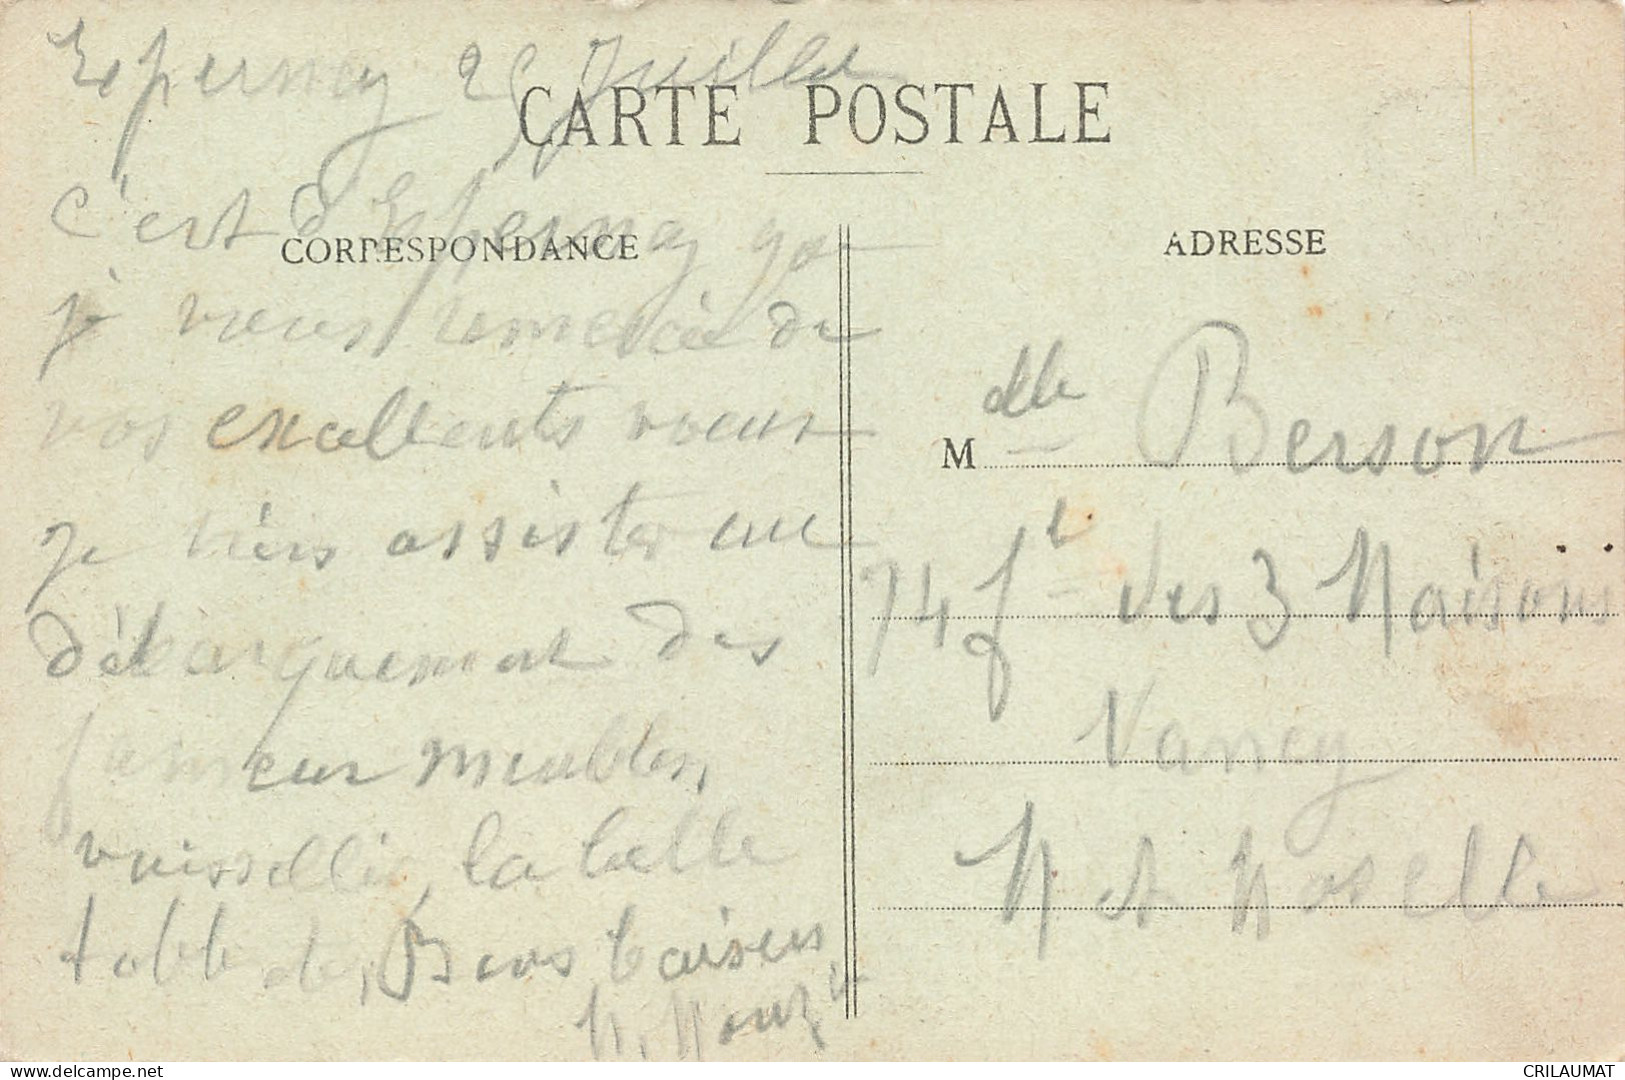 Epernay 25 Juillet
CARTE POSTALE
c'est d'Epernay que
CORRESPONDANCE
je vous remercie de
vos excellents voeux
je viens assister au
débarquement des
fameux meubles,
vaisselle, la belle
table de, Bons baisers
M.
ADRESSE
M dlle Berson
74 fg des 3 Maisons
Nancy
M et Moselle
Delcampe.net
CRILAUMAT